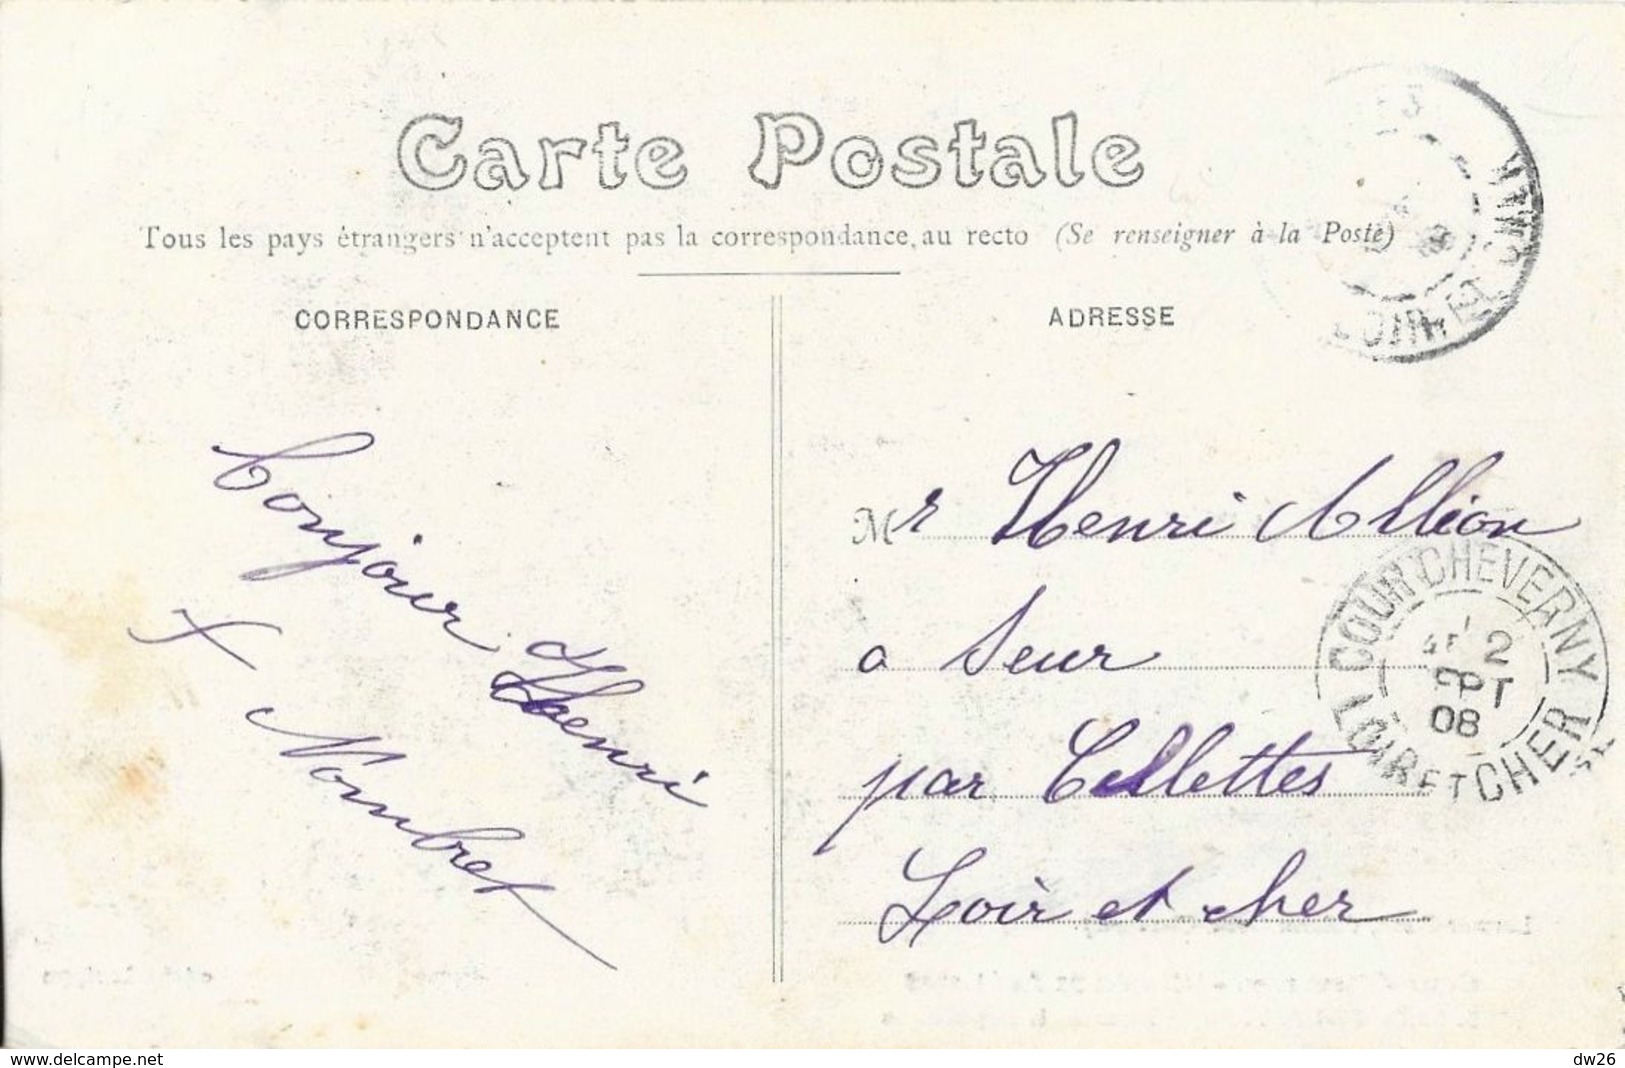 Carte Postale
Tous les pays étrangers n'acceptent pas la correspondance au recto (Se renseigner à la Poste)
CORRESPONDANCE
ADRESSE
LOIR-ET
Bonjour Henri
Mr Henri Allion
a Seur
par Cellettes
Loir et cher
COUR CHEVERNY
2
SEPT
08
LOIR ET CHER
www.delcampe.net
dw26